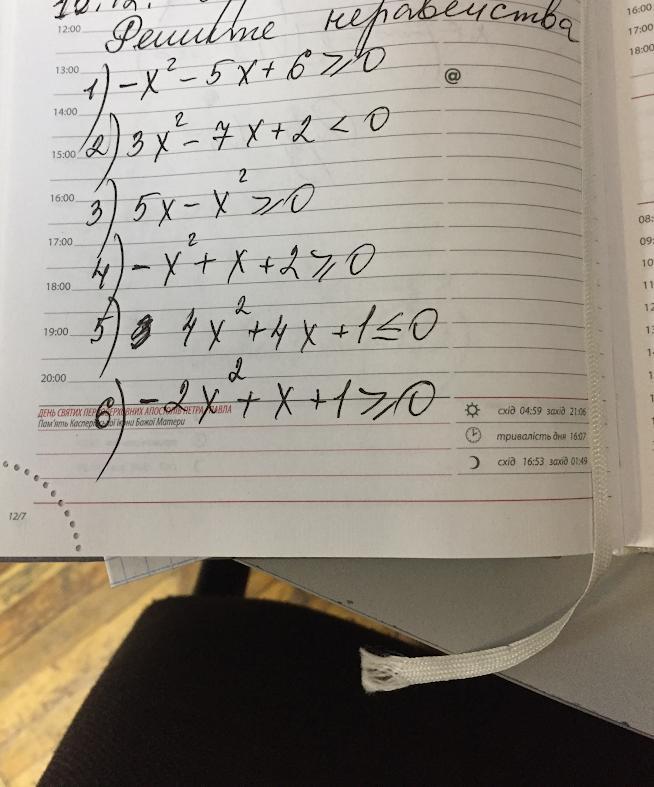 12:00
Решите неравенства
13:00
1) -x² - 5x + 6 ⩾ 0
@
14:00
2) 3x² - 7x + 2 < 0
15:00
16:00
3) 5x - x² ⩾ 0
17:00
4) -x² + x + 2 ⩾ 0
18:00
19:00
5) 4x² + 4x + 1 ≤ 0
20:00
6) -2x² + x + 1 ⩾ 0
ДЕНЬ СВЯТИХ ПЕРВОВЕРХОВНИХ АПОСТОЛІВ ПЕТРА І ПАВЛА
Пам'ять Касперівської ікони Божої Матери
схід 04:59 захід 21:06
тривалість дня 16:07
схід 16:53 захід 01:49
12/7
16:00
17:00
18:00
08:
09:
10
11
12
13
14
15
16
17
18